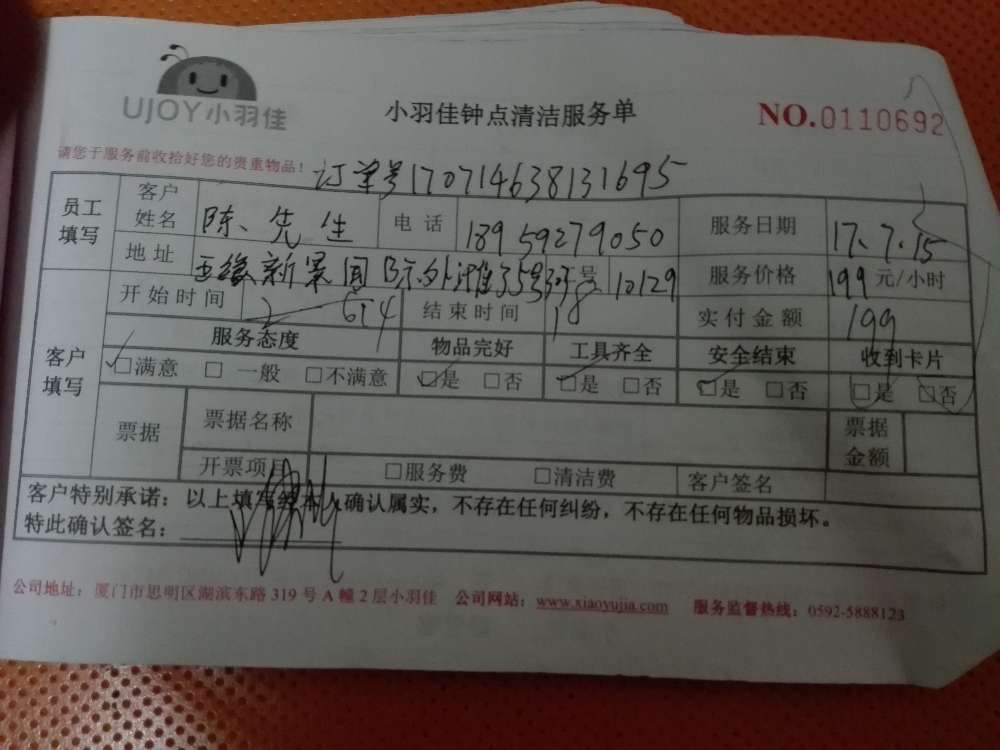 UJOY小羽佳
小羽佳钟点清洁服务单
NO.0110692
请您于服务前收拾好您的贵重物品！
订单号170714638131695
员工填写 客户姓名 陈先生 电话 18959279050 服务日期 17.7.15
地址 新景 号 10129 服务价格 199 元/小时
客户填写 开始时间 结束时间 18 实付金额 199
服务态度 物品完好 工具齐全 安全结束 收到卡片
□满意 □一般 □不满意 □是 □否 □是 □否 □是 □否 □是 □否
票据 票据名称 票据金额
开票项目 □服务费 □清洁费 客户签名
客户特别承诺：以上填写经本人确认属实，不存在任何纠纷，不存在任何物品损坏。
特此确认签名：
公司地址：厦门市思明区湖滨东路319号A幢2层小羽佳 公司网站：www.xiaoyujia.com 服务监督热线：0592-5888123